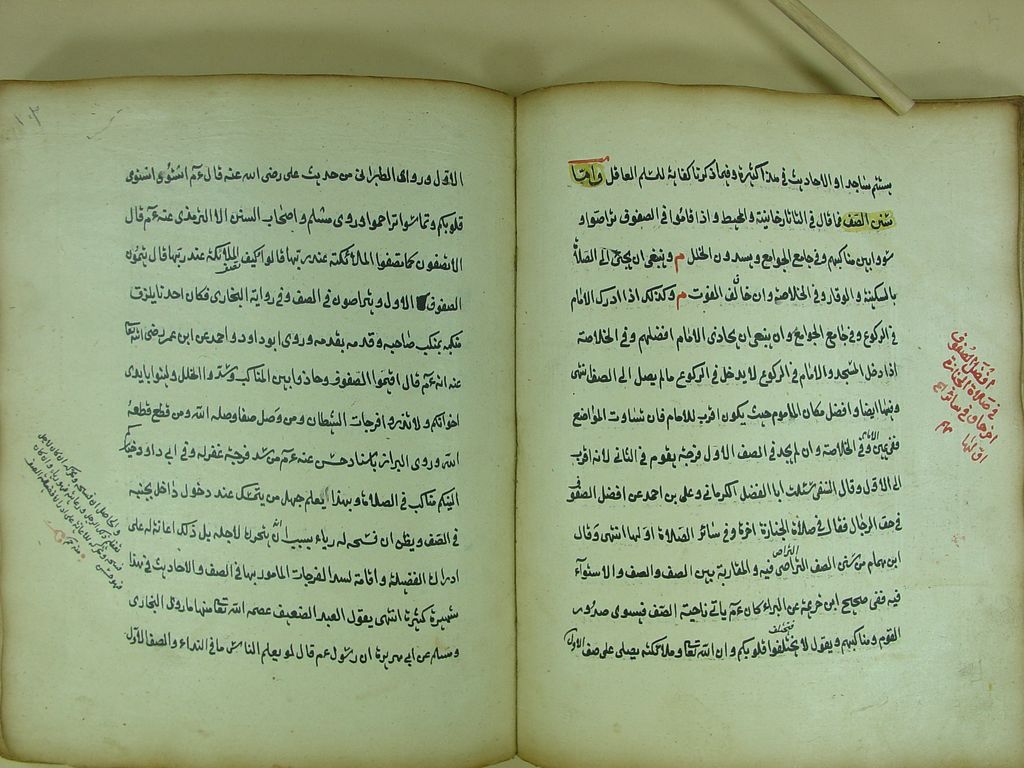 يستتم ساجدا والاحاديث في هذا كثيرة وفيما ذكرنا كفاية للمسلم العاقل واما
سنن الصف فما قال في التاتارخانية والمحيط واذا قاموا في الصفوف تراصوا و
سووا بين مناكبهم وفي جامع الجوامع ويسدون الخلل م وينبغي ان يجئ الى الصلاة
بالسكينة والوقار وفي الخلاصة وان خاف الفوت م وكذلك اذا ادرك الامام
في الركوع وفي جامع الجوامع وان ينبغي ان يحاذي الامام افضلهم وفي الخلاصة
اذا دخل المسجد والامام في الركوع لا يدخل في الركوع مالم يصل الى الصف انتهى
وفيها ايضا وافضل مكان الماموم حيث يكون اقرب للامام فان تساوت المواضع
فعن يمين الامام وفي الخلاصة وان لم يجد في الصف الاول فرجة يقوم في الثاني لانه اقرب
الى الاول وقال النسفي سئلت ابا الفضل الكرماني وعلي بن احمد عن افضل الصفوف
في حق الرجال فقال في صلاة الجنازة اخرها وفي سائر الصلاة اولها انتهى وقال
ابن همام من سنن الصف التراص فيه والمقاربة بين الصف والصف والاستوآء
فيه ففي صحيح ابن خزيمة عن البراء كان عم ياتي ناحية الصف فيسوي صدور
القوم ومناكبهم ويقول لا تختلفوا فتختلف قلوبكم وان الله تعا وملائكته يصلي على صف الاول
افضل الصفوف
في صلاة الجنازة
اخرها وفي سائرها
اولها
١٠٢
الاول وروى الطبراني من حديث علي رضي الله عنه قال عم استووا تستوى
قلوبكم وتماسوا تراحموا وروى مسلم واصحاب السنن الا الترمذي عنه عم قال
الا تصفون كما تصف الملائكة عند ربها قالوا كيف تصف الملائكة عند ربها قال يتمون
الصفوف الاول ويتراصون في الصف وفي رواية البخاري فكان احدنا يلزق
منكبه بمنكب صاحبه وقدمه بقدمه وروى ابو داود واحمد عن ابن عمر رضى الله تعا
عنه انه عم قال اقيموا الصفوف وحاذوا بين المناكب وسدوا الخلل ولينوا بايدي
اخوانكم ولا تذروا فرجات الشيطان ومن وصل صفا وصله الله ومن قطع قطعه
الله وروى البزاز باسناد حسن عنه عم من سد فرجة غفر له وفي ابي داود خياركم
الينكم مناكب في الصلاة وبهذا يعلم جهل من يتمسك عند دخول داخل بجنبه
في الصف ويظن ان فسحه له رياء بسبب انه يتحرك لاجله بل ذلك اعانة له على
ادراك الفضيلة واقامة لسد الفرجات المامور بها في الصف والاحاديث في هذا
شهيرة كثيرة انتهى يقول العبد الضعيف عصمه الله تعا منها ما روى البخاري
ومسلم عن ابي هريرة ان رسول عم قال لو يعلم الناس ما في النداء والصف الاول
والحاصل ان فسحه وتحركه ان كان لاجل